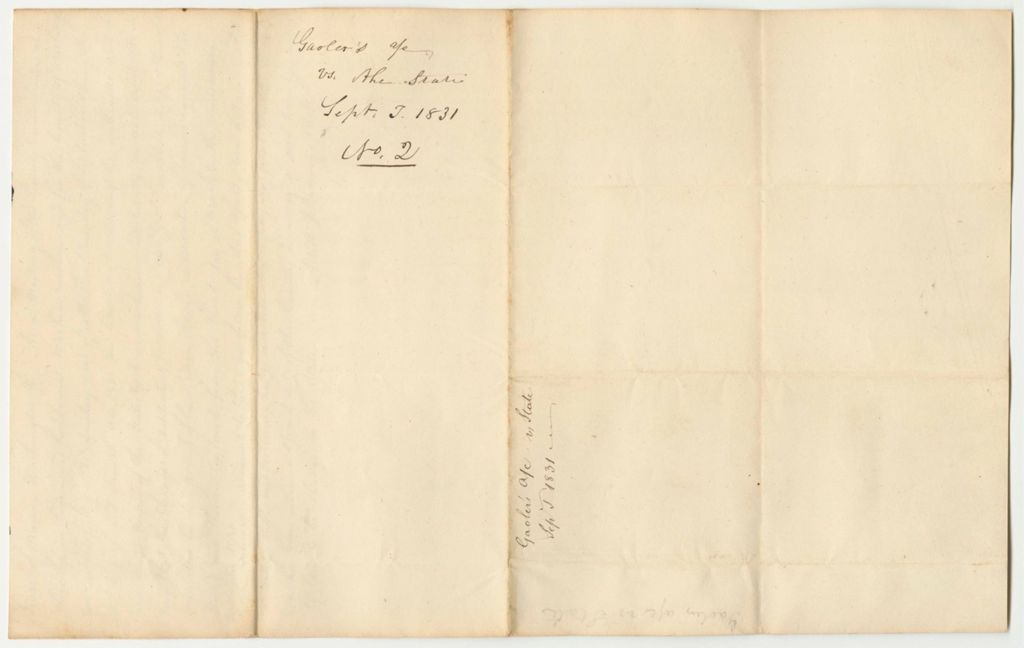 Gaoler's a/c
vs. The State
Sept. T. 1831
No. 2
Gaoler's a/c vs State
Sep T 1831
a/c vs State